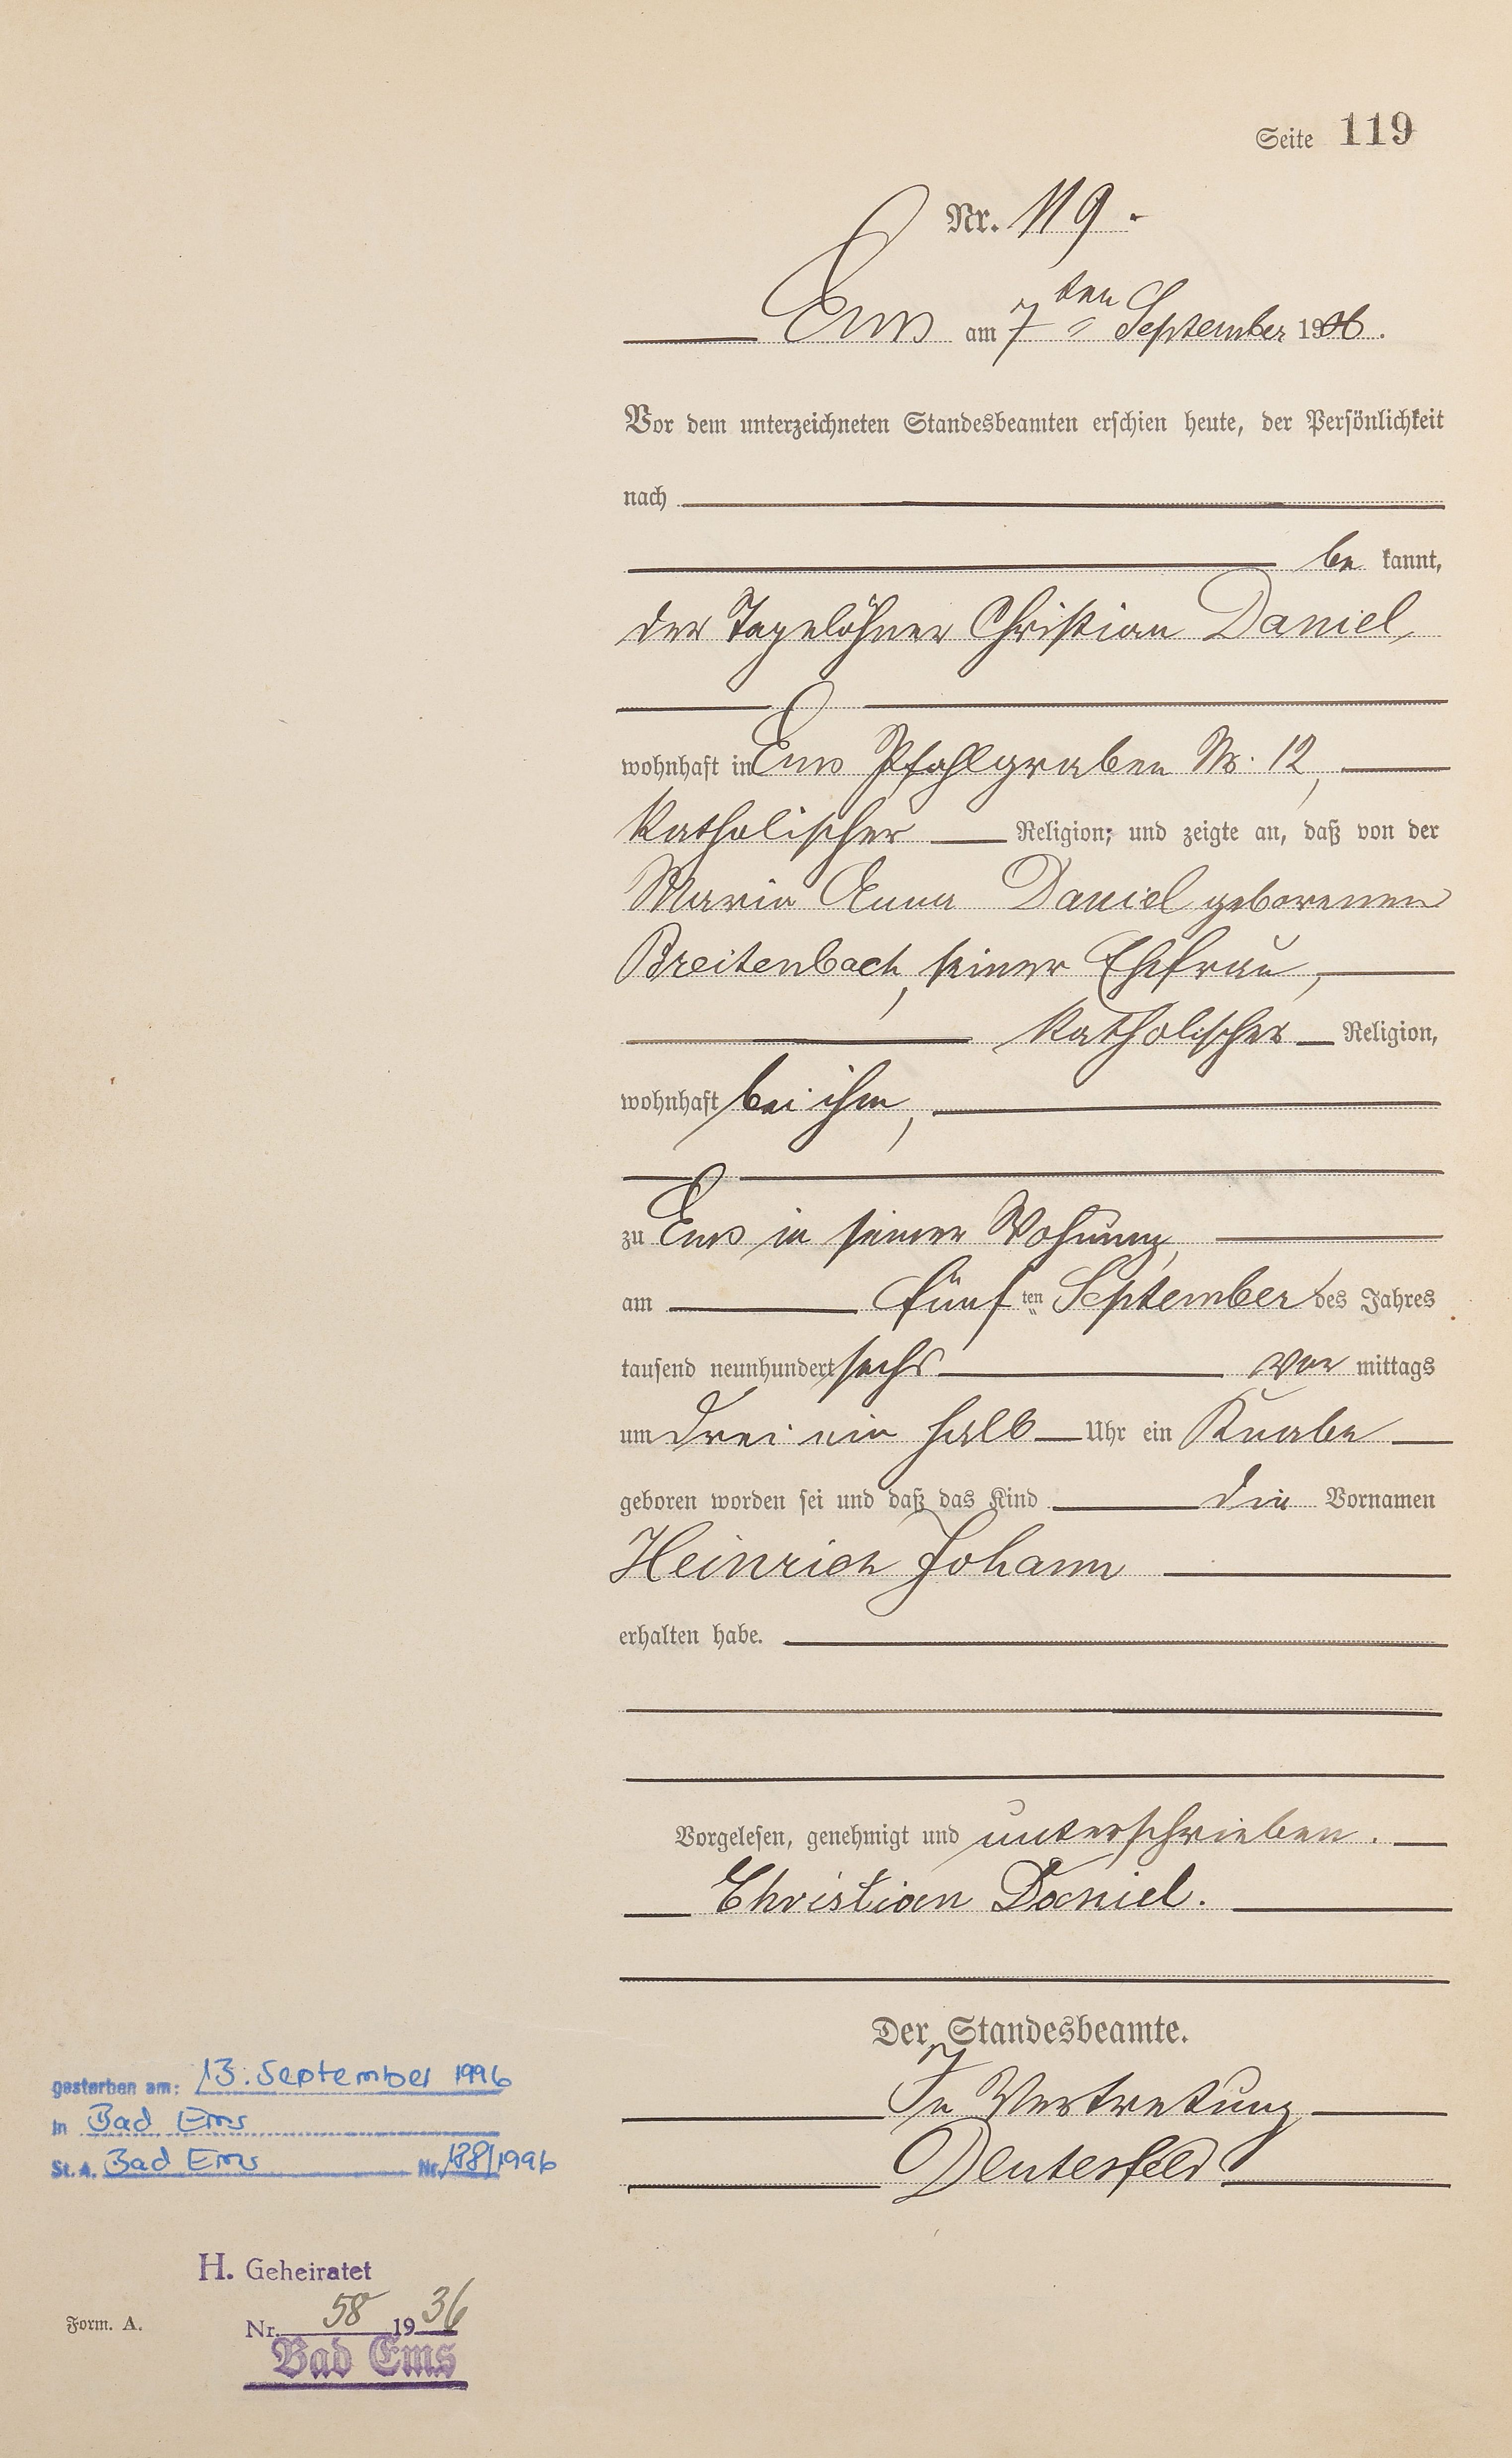 Seite 119
Nr. 119.
Ems am 7ten September 1906.
Vor dem unterzeichneten Standesbeamten erschien heute, der Persönlichkeit
nach
be kannt,
der Tagelöhner Christian Daniel,
wohnhaft in Ems Pfahlgraben Nr. 12,
katholischer Religion, und zeigte an, daß von der
Maria Anna Daniel geborenen
Breitenbach, seiner Ehefrau,
katholischer Religion,
wohnhaft bei ihm,
zu Ems in seiner Wohnung,
am fünf ten September des Jahres
tausend neunhundert sechs vor mittags
um drei ein halb Uhr ein Knabe
geboren worden sei und daß das Kind die Vornamen
Heinrich Johann
erhalten habe.
Vorgelesen, genehmigt und unterschrieben.
Christian Daniel.
Der Standesbeamte.
In Vertretung
gestorben am: 13. September 1996
in Bad Ems
St. A. Bad Ems Nr. 188/1996
H. Geheiratet
Form. A. Nr. 58 1936
Bad Ems